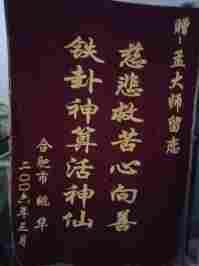 赠:孟大师留恋
慈悲救苦心向善
铁卦神算活神仙
合肥市 鲍华
二00六年三月